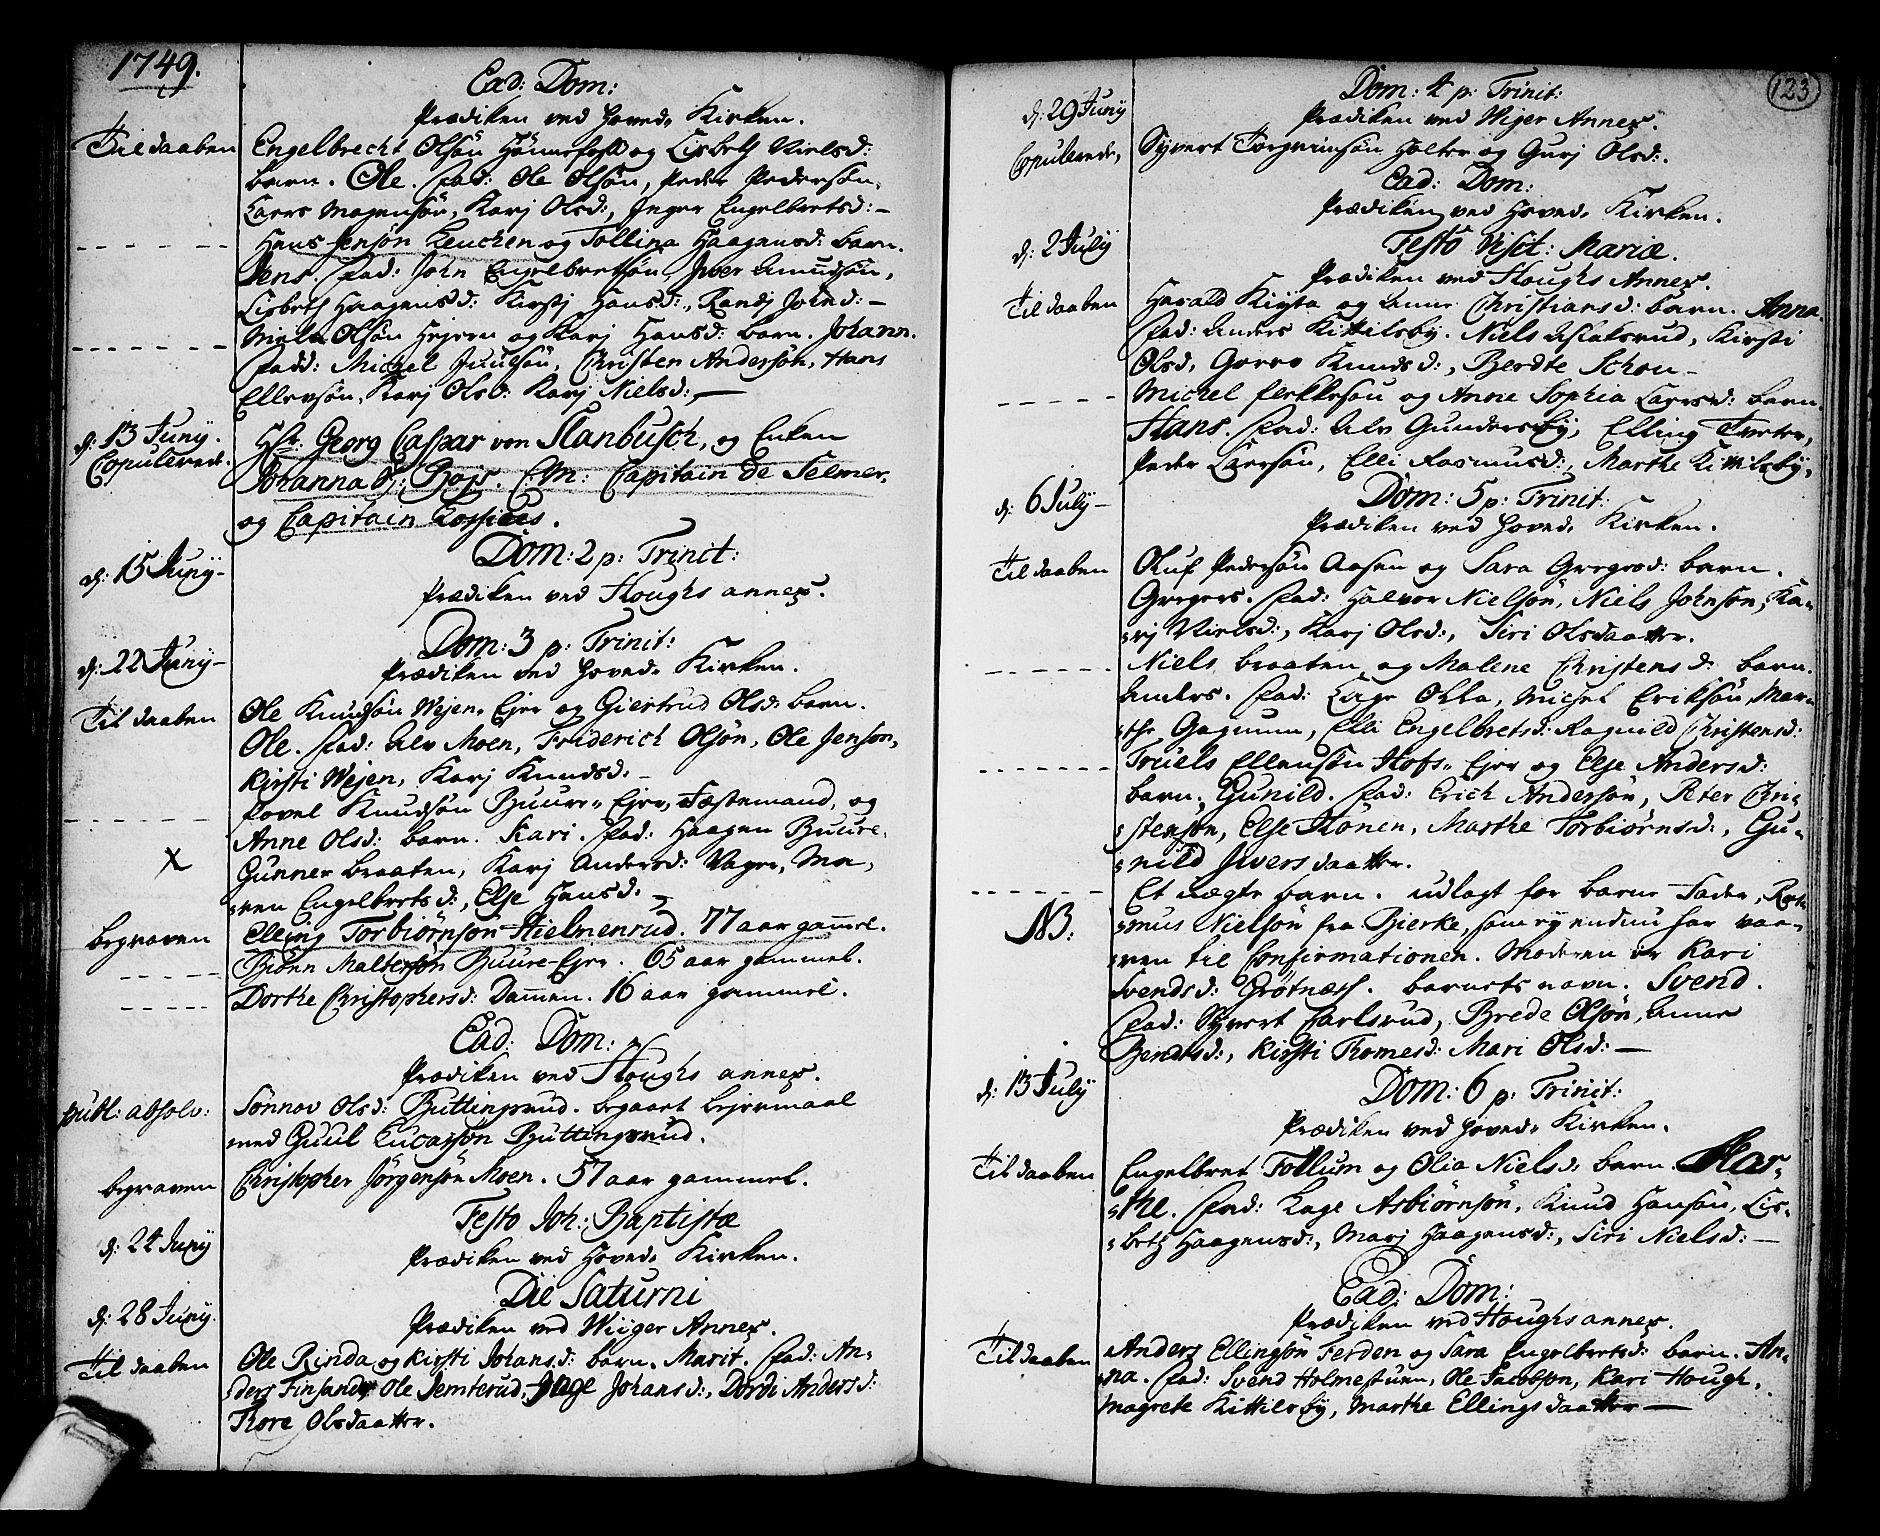 1749.
Ead: Dom:
Prædiken ved Hoved. Kirken.
Til daaben Engelbrecht Olsön Hönnefoss og Lisbeth Nielsd:
barn. Ole. Fad: Ole Olsön, Peder Pedersön,
Laers Mogensön, Karj Olsd:, Inger Engelbretsd: -
Hans Jensön Leuchen og Tollina Haagensd: barn.
Jens. Fad: John Engelbretsön, Iver Amundsön,
Lisbeth Haagensd: Kirstj Hansd:, Randj Johnd: -
Olsön Hejern og Karj Hansd: barn. Johann.
Fadd: Michel Juulsön, Christen Andersön, Hans
Ellevsön, Karj Olsd: Karj Nielsd: -
d: 13 Juny. Hr: Georg Caspar von Stanbusch, og Enken
Copulerede. Johanna Bojs. C:M: Capitain de Selmer,
og Capitain
d: 15 Juny- Dom: 2 p: Trinit:
Prædiken ved Houghs annex.
d: 22 Juny- Dom: 3 p: Trinit:
Prædiken ved Hoved. Kirken.
Til daaben Ole Knudsön Wejen, Ejer og Giertrud Olsd: barn.
Ole. Fad: Alv Moen, Friderich Olsön, Ole Jenson,
Kirsti Wejen, Karj Knudsd: -
Povel Knudsön Buure, Ejer, Fæstemand, og
Anne Olsd: barn. Kari. Fad: Haagen Buure.
X Gunner braaten, Karj Andersd: Vager, Ma,
ren Engelbretsd:, Else Hansd: -
begraven Elling Torbiörnsön Hielmenrud. 77 aar gammel.
Biörn Maltersön Buure-Ejer. 65 aar gammel.
Dorthe Christophersd: Dammen. 16 aar gammel.
Ead: Dom:
Prædiken ved Houghs annex.
publ: absolv: Sönnov Olsd: Buttingsrud. begaaet lejermaal
med Guul Lucassön Buttingsrud.
begraven Christopher Jörgensön Moen. 57 aar gammel.
d: 24 Juny Festo Joh: Baptistæ
Prædiken ved Hoved. Kirken.
d: 28 Juny. Die Saturni
Prædiken ved Wiiger Annex.
Til daaben Ole Rinda og Kirsti Johansd: barn. Marit. Fad: An,
ders Finsand, Ole Jemterud, Inge Johansd:, Dordi Andersd:
Thore Olsdaatter.
123
d: 29 Juny Dom: 4 p: Trinit:
Prædiken ved Wiger Annex.
Copulerede, Syvert Torgrimsön Holter og Gurj Olsd:.
Ead: Dom:
Prædiken ved Hoved. Kirken.
d: 2 July Festo Visit: Mariæ.
Prædiken ved Houghs Annex.
Til daaben Harald og Anne Christiansd: barn. Anna.
Fad: Anders Kittilsby. Niels Aslaksrud, Kirsti
Olsd, Gorro Knudsd:, Berdte Schou -
Michel og Anne Sophia Laersd: barn.
Hans. Fad: Alv Gundersby, Elling Tveter,
Peder Laersön, Elli Rasmusd:, Marthe Kittilsby,
d: 6 July- Dom: 5 p: Trinit:
Prædiken ved Hoved. Kirken.
Til daaben Oluf Pedersön Aasen og Sara Gregersd: barn.
Gregers. Fad: Halvor Nielsön, Niels Johnson, Ka-
rj Nielsd:, Karj Olsd:, Siri Olsdaatter.
Niels braaten og Malene Christensd: barn.
Anders. Fad: Lage Okla, Michel Eriksön, Mar-
the Gagnum, Elli Engelbretsd: Ragnild Christensd:
Truels Ellensön Hofs, Ejer og Else Andersd:
barn. Gunild. Fad: Erich Andersön, Peter Chri-
stensön, Else Hönen, Marthe Torbiörnsd:, Gu-
nild Iversdaatter.
NB: Et uægte barn. udlagt for barne-Fader, Ras
mus Nielsön fra Bjerke, som ey endnu har væ-
ren til Confirmationen. Moderen er Kari
Svendsd: Grötnæss. barnets navn. Svend.
Fad: Syvert Carlsrud, Brede Olsön, Anne
Bendtsd:, Kirsti Tromesd: Mari Olsd: -
d: 13 July Dom: 6 p: Trinit:
Prædiken ved Hoved. Kirken.
Til daaben Engelbret Follum og Olia Nielsd. barn. Mar-
the. Fad: Lage Asbiörnsön, Knud Hansön, Lis-
beth Haagensd:, Marj Haagensd:, Siri Nielsd: -
Ead: Dom:
Prædiken ved Houghs annex.
Til daaben Anders Ellingsön Ferden og Sara Engelbretsd: barn. An-
na. Fad: Svend Holmestuen, Ole Jacobsön, Kari Hough,
Magrete Kittilsby, Marthe Ellingsdaatter -